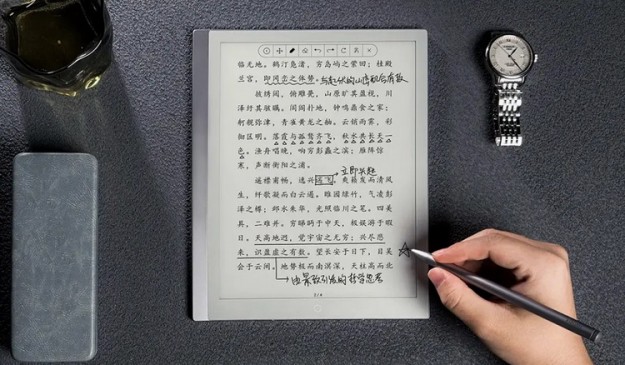 临无地。鹤汀凫渚,穷岛屿之萦回;桂殿
兰宫,即冈峦之体势。与起伏的山峦相合有致
披绣闼,俯雕甍,山原旷其盈视,川
泽纡其骇瞩。闾阎扑地,钟鸣鼎食之家;
舸舰弥津,青雀黄龙之舳。云销雨霁,彩
彻区明。落霞与孤鹜齐飞,秋水共长天一
色。渔舟唱晚,响穷彭蠡之滨;雁阵惊
寒,声断衡阳之浦。
立即兴起
遥襟甫畅,逸兴遄飞。爽籁发而清风
生,纤歌凝而白云遏。睢园绿竹,气凌彭
泽之樽;邺水朱华,光照临川之笔。四美
具,二难并。穷睇眄于中天,极娱游于暇
日。天高地迥,觉宇宙之无穷;兴尽悲
来,识盈虚之有数。望长安于日下,目吴
会于云间。地势极而南溟深,天柱高而北
由景致引发的哲学思考